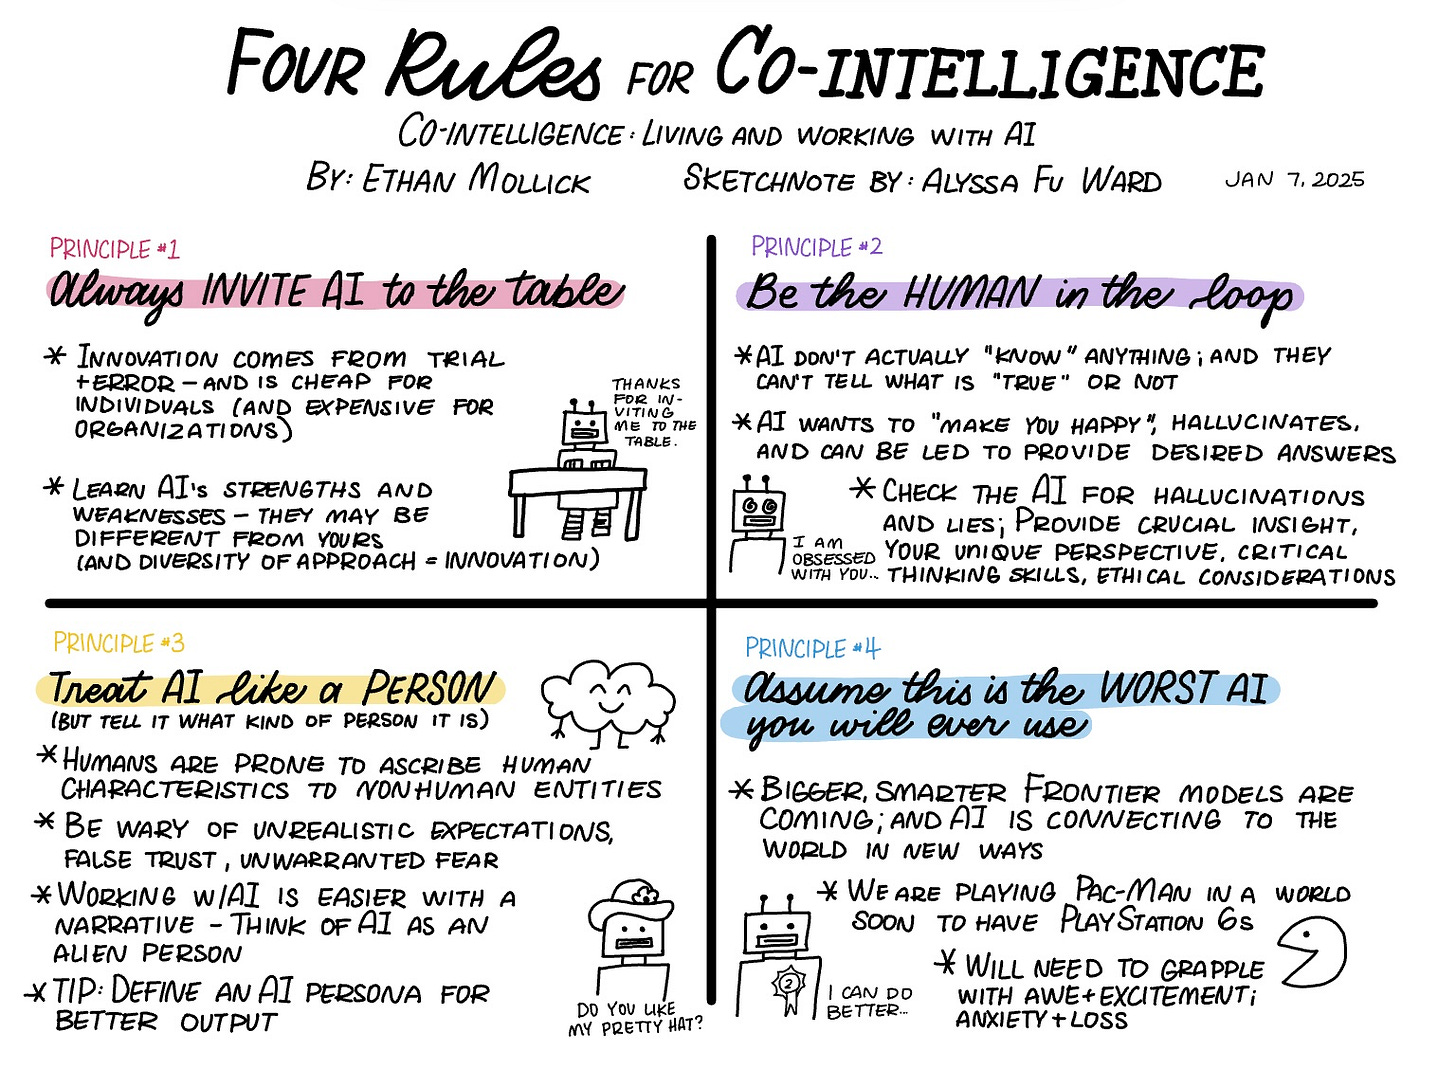 FOUR Rules FOR CO-INTELLIGENCE
CO-INTELLIGENCE: LIVING AND WORKING WITH AI
BY: ETHAN MOLLICK SKETCHNOTE BY: ALYSSA FU WARD JAN 7, 2025
PRINCIPLE #1
Always INVITE AI to the table
* INNOVATION COMES FROM TRIAL
+ERROR - AND IS CHEAP FOR
INDIVIDUALS (AND EXPENSIVE FOR
ORGANIZATIONS)
THANKS
FOR IN-
VITING
ME TO THE
TABLE.
* LEARN AI's STRENGTHS AND
WEAKNESSES - THEY MAY BE
DIFFERENT FROM YOURS
(AND DIVERSITY OF APPROACH = INNOVATION)
PRINCIPLE #2
Be the HUMAN in the loop
* AI DON'T ACTUALLY "KNOW" ANYTHING; AND THEY
CAN'T TELL WHAT IS "TRUE" OR NOT
* AI WANTS TO "MAKE YOU HAPPY", HALLUCINATES,
AND CAN BE LED TO PROVIDE DESIRED ANSWERS
* CHECK THE AI FOR HALLUCINATIONS
AND LIES; PROVIDE CRUCIAL INSIGHT,
YOUR UNIQUE PERSPECTIVE, CRITICAL
THINKING SKILLS, ETHICAL CONSIDERATIONS
I AM
OBSESSED
WITH YOU...
PRINCIPLE #3
Treat AI like a PERSON
(BUT TELL IT WHAT KIND OF PERSON IT IS)
* HUMANS ARE PRONE TO ASCRIBE HUMAN
CHARACTERISTICS TO NONHUMAN ENTITIES
* BE WARY OF UNREALISTIC EXPECTATIONS,
FALSE TRUST, UNWARRANTED FEAR
* WORKING W/AI IS EASIER WITH A
NARRATIVE - THINK OF AI AS AN
ALIEN PERSON
* TIP: DEFINE AN AI PERSONA FOR
BETTER OUTPUT
DO YOU LIKE
MY PRETTY HAT?
PRINCIPLE #4
Assume this is the WORST AI
you will ever use
* BIGGER, SMARTER FRONTIER MODELS ARE
COMING; AND AI IS CONNECTING TO THE
WORLD IN NEW WAYS
* WE ARE PLAYING PAC-MAN IN A WORLD
SOON TO HAVE PLAYSTATION 6s
* WILL NEED TO GRAPPLE
WITH AWE+EXCITEMENT;
ANXIETY+LOSS
2
I CAN DO
BETTER...